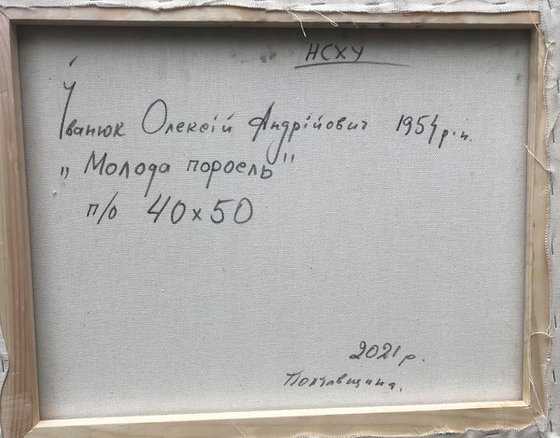 НСХУ
Іванюк Олексій Андрійович 1954 р.н.
„Молода поросль"
п/о 40х50
2021р.
Полтавщина.